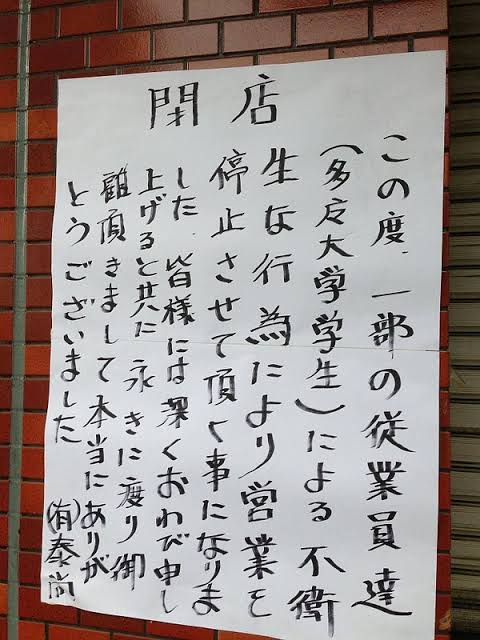 閉店
この度、一部の従業員達
(多摩大学学生)による不衛
生な行為により営業を
停止させて頂く事になりま
した 皆様には深くおわび申し
上げると共に 永きに渡り御
顧頂きまして本当にありが
とうございました
(有)泰尚